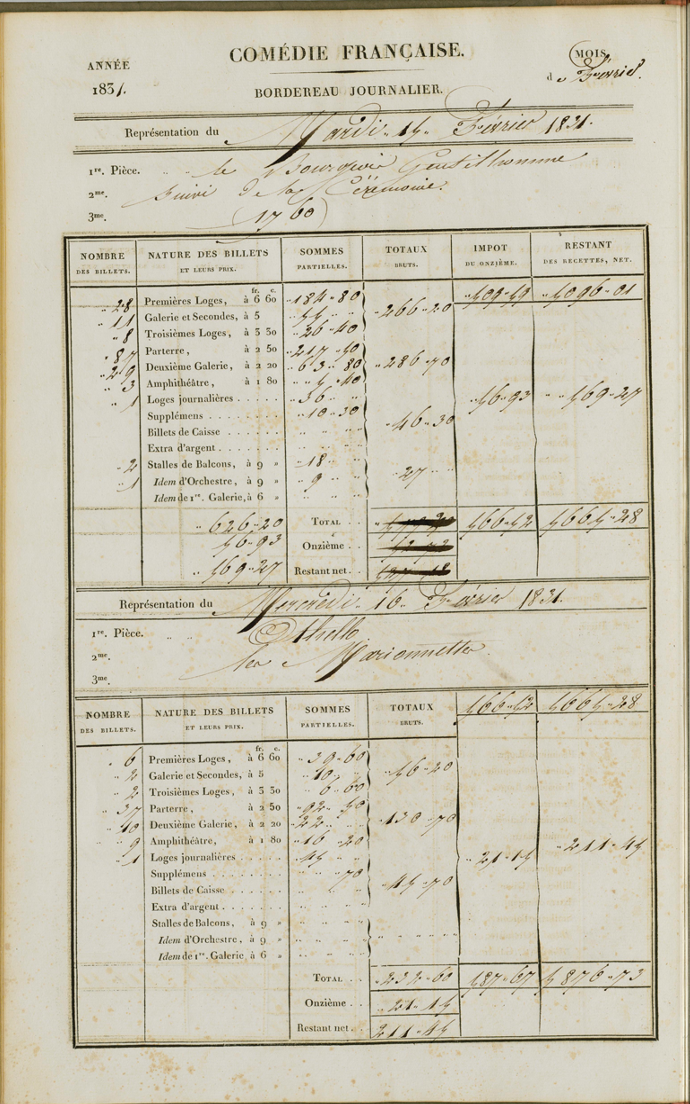 COMÉDIE FRANÇAISE.
ANNÉE
1831.
MOIS
de Février.
BORDEREAU JOURNALIER.
Représentation du Mardi 15 Février 1831.
1re. Pièce. le Bourgeois Gentilhomme
2me. Suivi de la Cérémonie.
3me. (1760)
NOMBRE DES BILLETS. NATURE DES BILLETS ET LEURS PRIX. SOMMES PARTIELLES. TOTAUX BRUTS. IMPOT DU ONZIÈME. RESTANT DES RECETTES, NET.
fr. c.
28 Premières Loges, à 6 60 184 80 509 59 5096 01
11 Galerie et Secondes, à 5 55 266 20
8 Troisièmes Loges, à 3 30 26 40
87 Parterre, à 2 50 217 50
29 Deuxième Galerie, à 2 20 63 80 286 70
3 Amphithéâtre, à 1 80 5 40
1 Loges journalières 36 56 93 569 27
Supplémens 10 30 46 30
Billets de Caisse
Extra d'argent
2 Stalles de Balcons, à 9 " 18
1 Idem d'Orchestre, à 9 " 9 27
Idem de 1re. Galerie, à 6 "
626 20 TOTAL 566 52 5665 28
56 93 Onzième
569 27 Restant net.
Représentation du Mercredi 16 Février 1831.
1re. Pièce. Othello
2me. Les Marionnettes
3me.
NOMBRE DES BILLETS. NATURE DES BILLETS ET LEURS PRIX. SOMMES PARTIELLES. TOTAUX BRUTS. 566 52 5665 28
fr. c.
6 Premières Loges, à 6 60 39 60
2 Galerie et Secondes, à 5 10 56 20
2 Troisièmes Loges, à 3 30 6 60
37 Parterre, à 2 50 92 50
10 Deuxième Galerie, à 2 20 22 130 70
9 Amphithéâtre, à 1 80 16 20
1 Loges journalières 45 21 15 211 45
Supplémens 70 45 70
Billets de Caisse
Extra d'argent
Stalles de Balcons, à 9 "
Idem d'Orchestre, à 9 "
Idem de 1re. Galerie à 6 "
TOTAL 232 60 587 67 5876 73
Onzième 21 15
Restant net 211 45